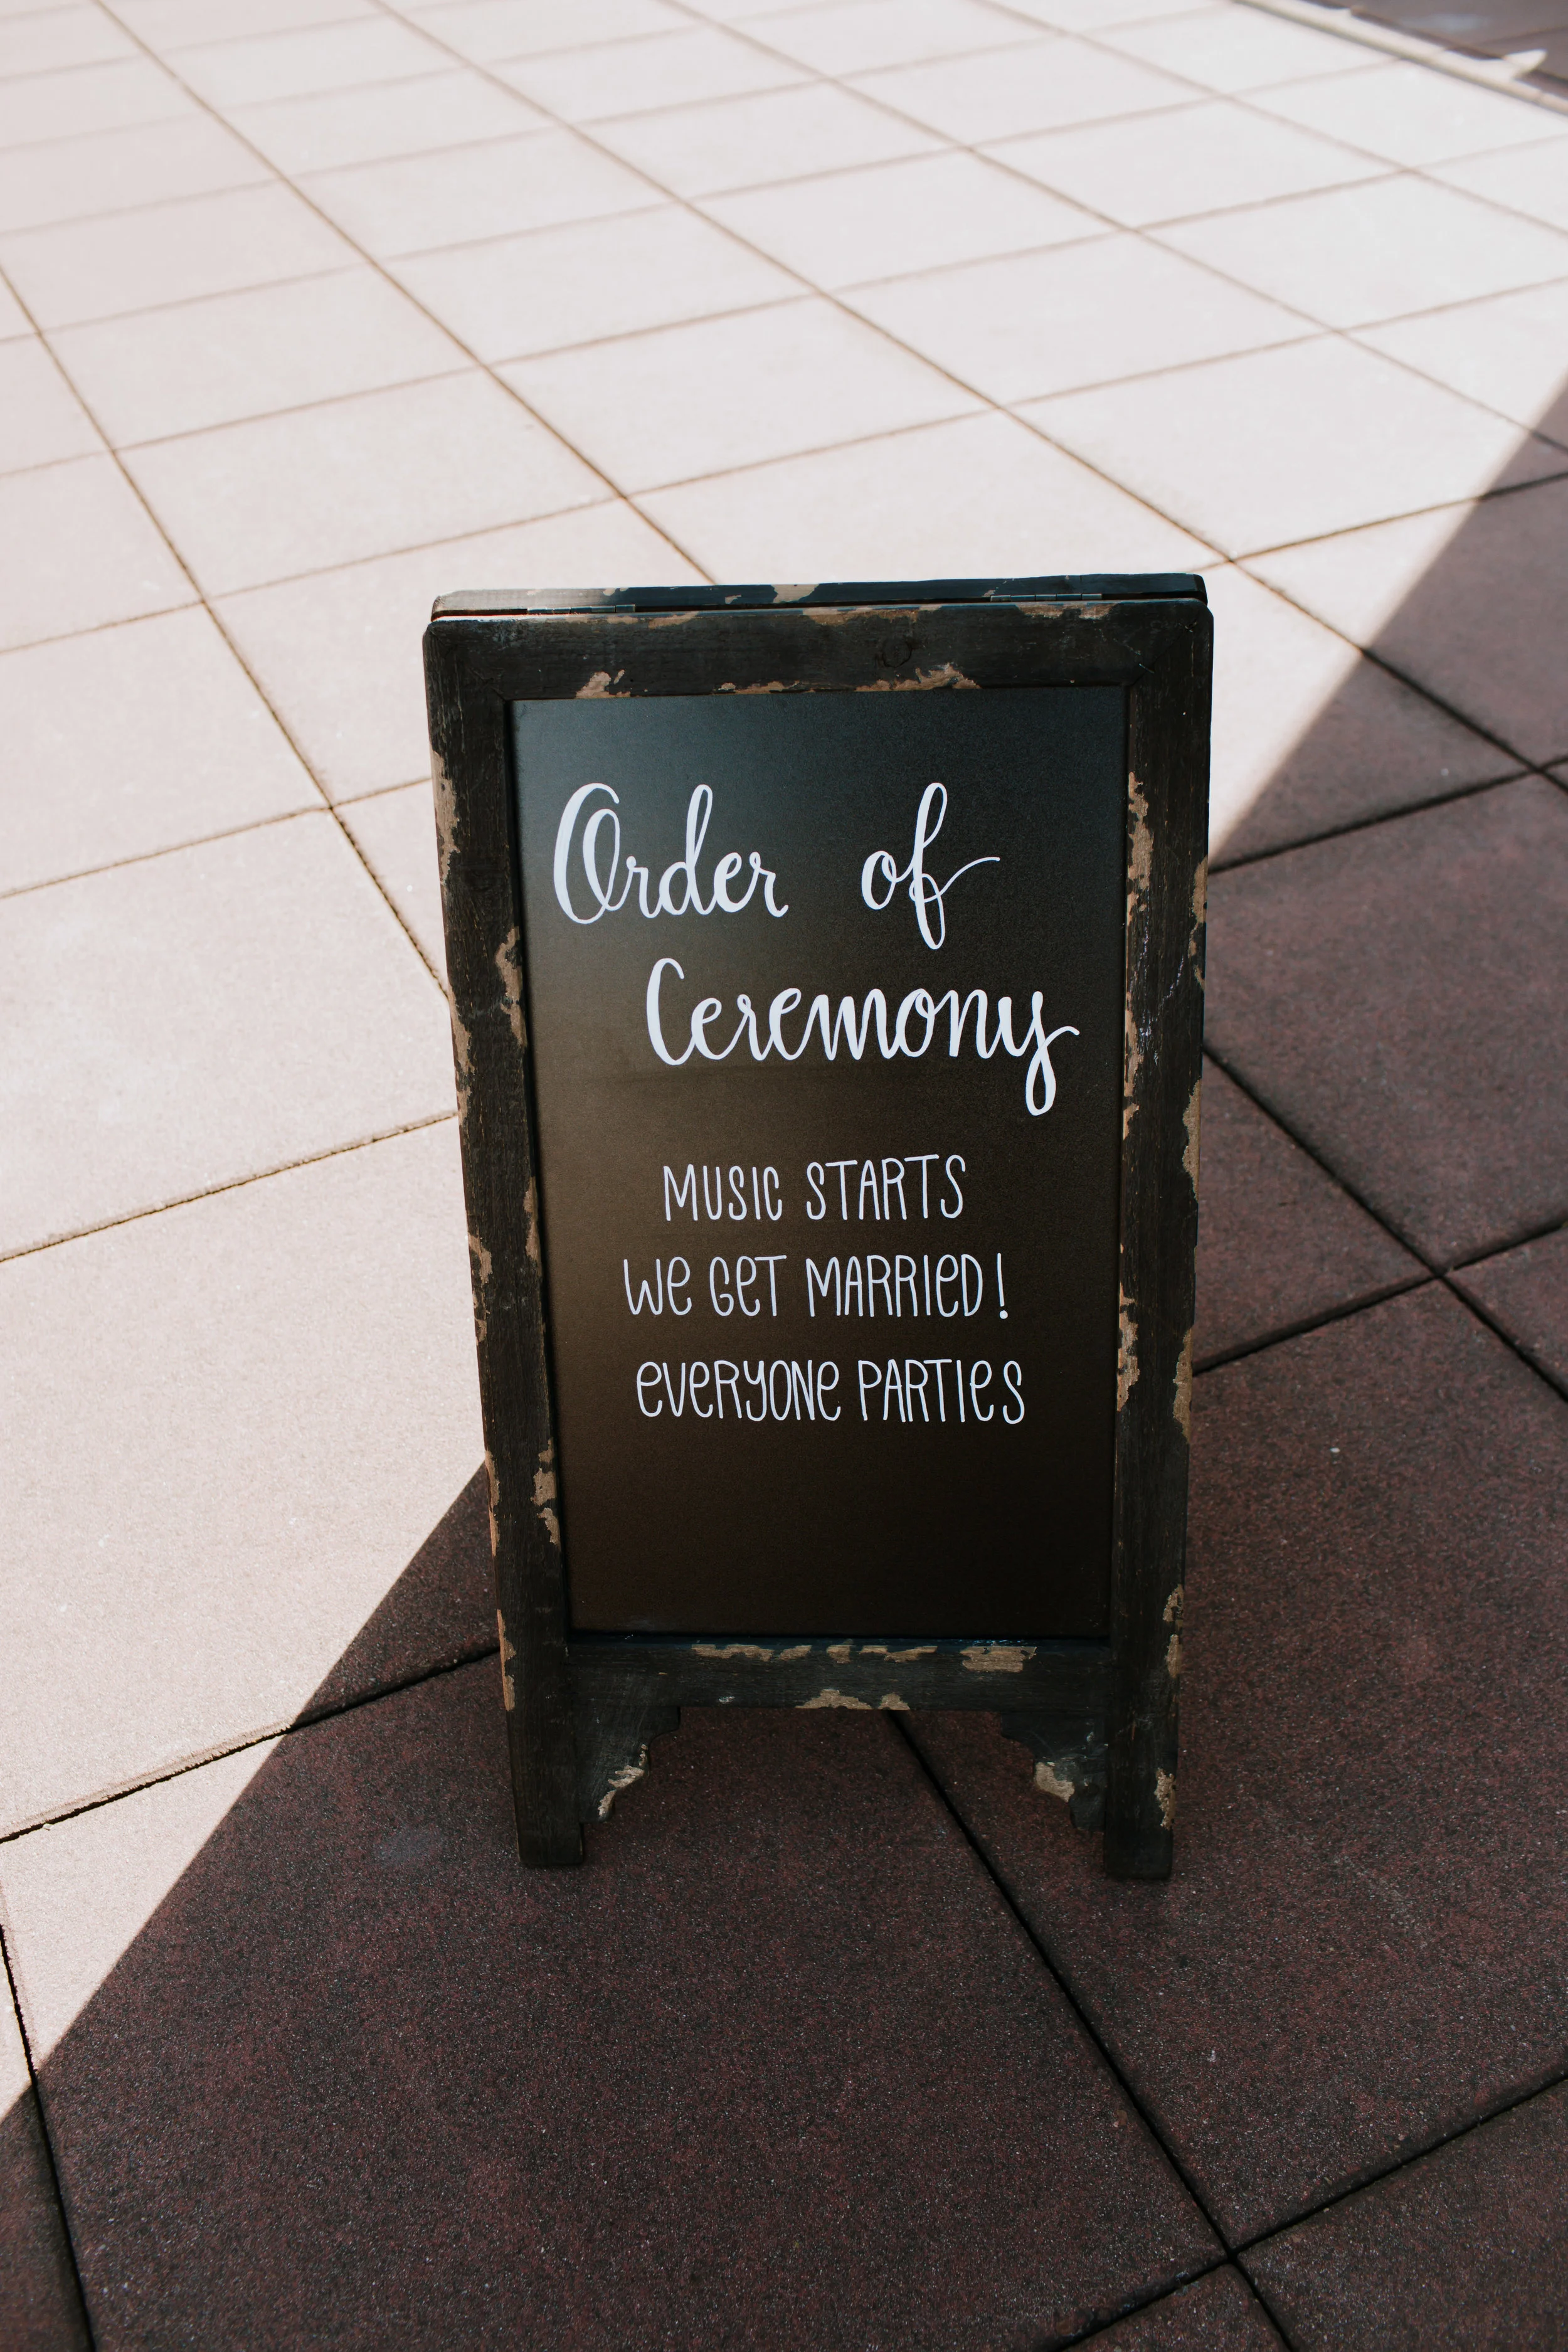 Order of
Ceremony
MUSIC STARTS
We GeT MARRIeD!
eVeRYONe PARTIeS